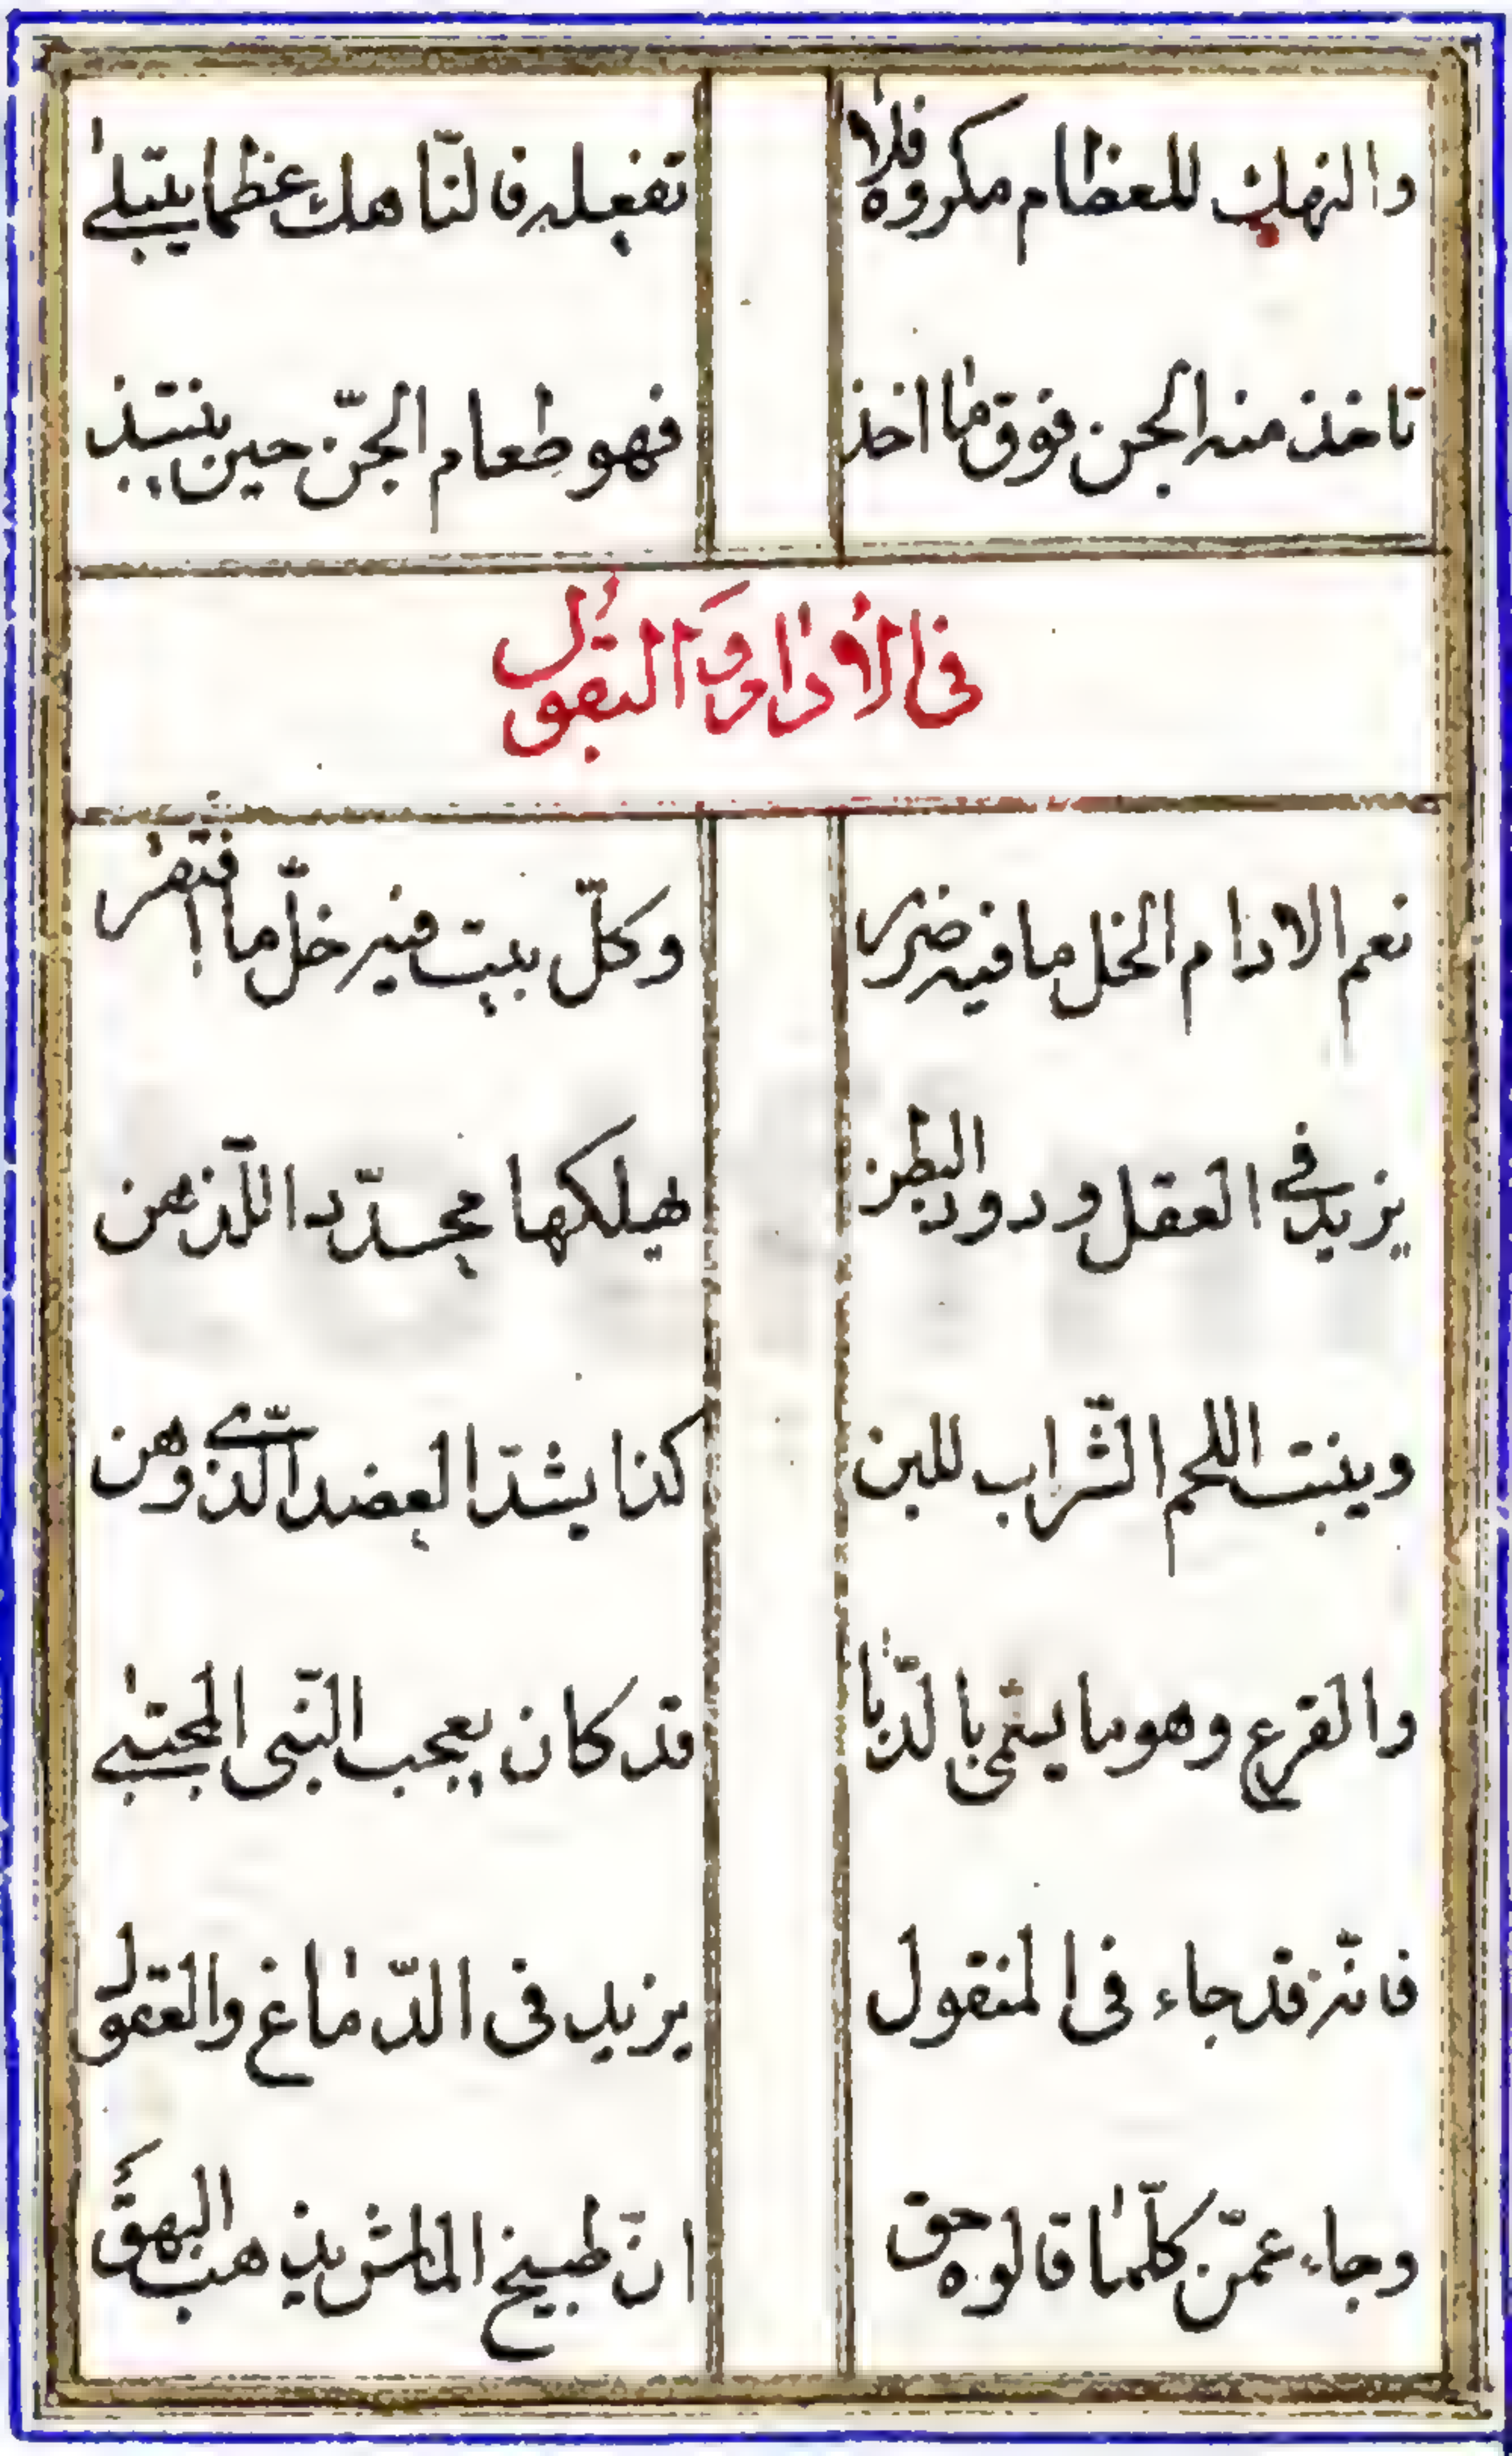 والنهك للعظام مكروه فلا تفعله فالنّاهك عظما يبتلى
تاخذ منه الجن فوق ما اخذ فهو طعام الجنّ حين ينتبذ
فى الادام والبقول
نعم الادام الخل ما فيه ضرر وكلّ بيت فيه خلّ ما افتقر
يزيد فى العقل ودود البطن يهلكها مجدّدا للّذهن
وينبت اللحم الشّراب للبن كذا يشدّ العضد الّذى وهن
والقرع وهو ما يسمّى بالدّبا قد كان يعجب النّبى المجتبى
فانّه قد جاء فى المنقول يزيد فى الدّماغ والعقول
وجاء عمّن كلّما قالوه حق انّ طبيخ الماش يذهب البهق